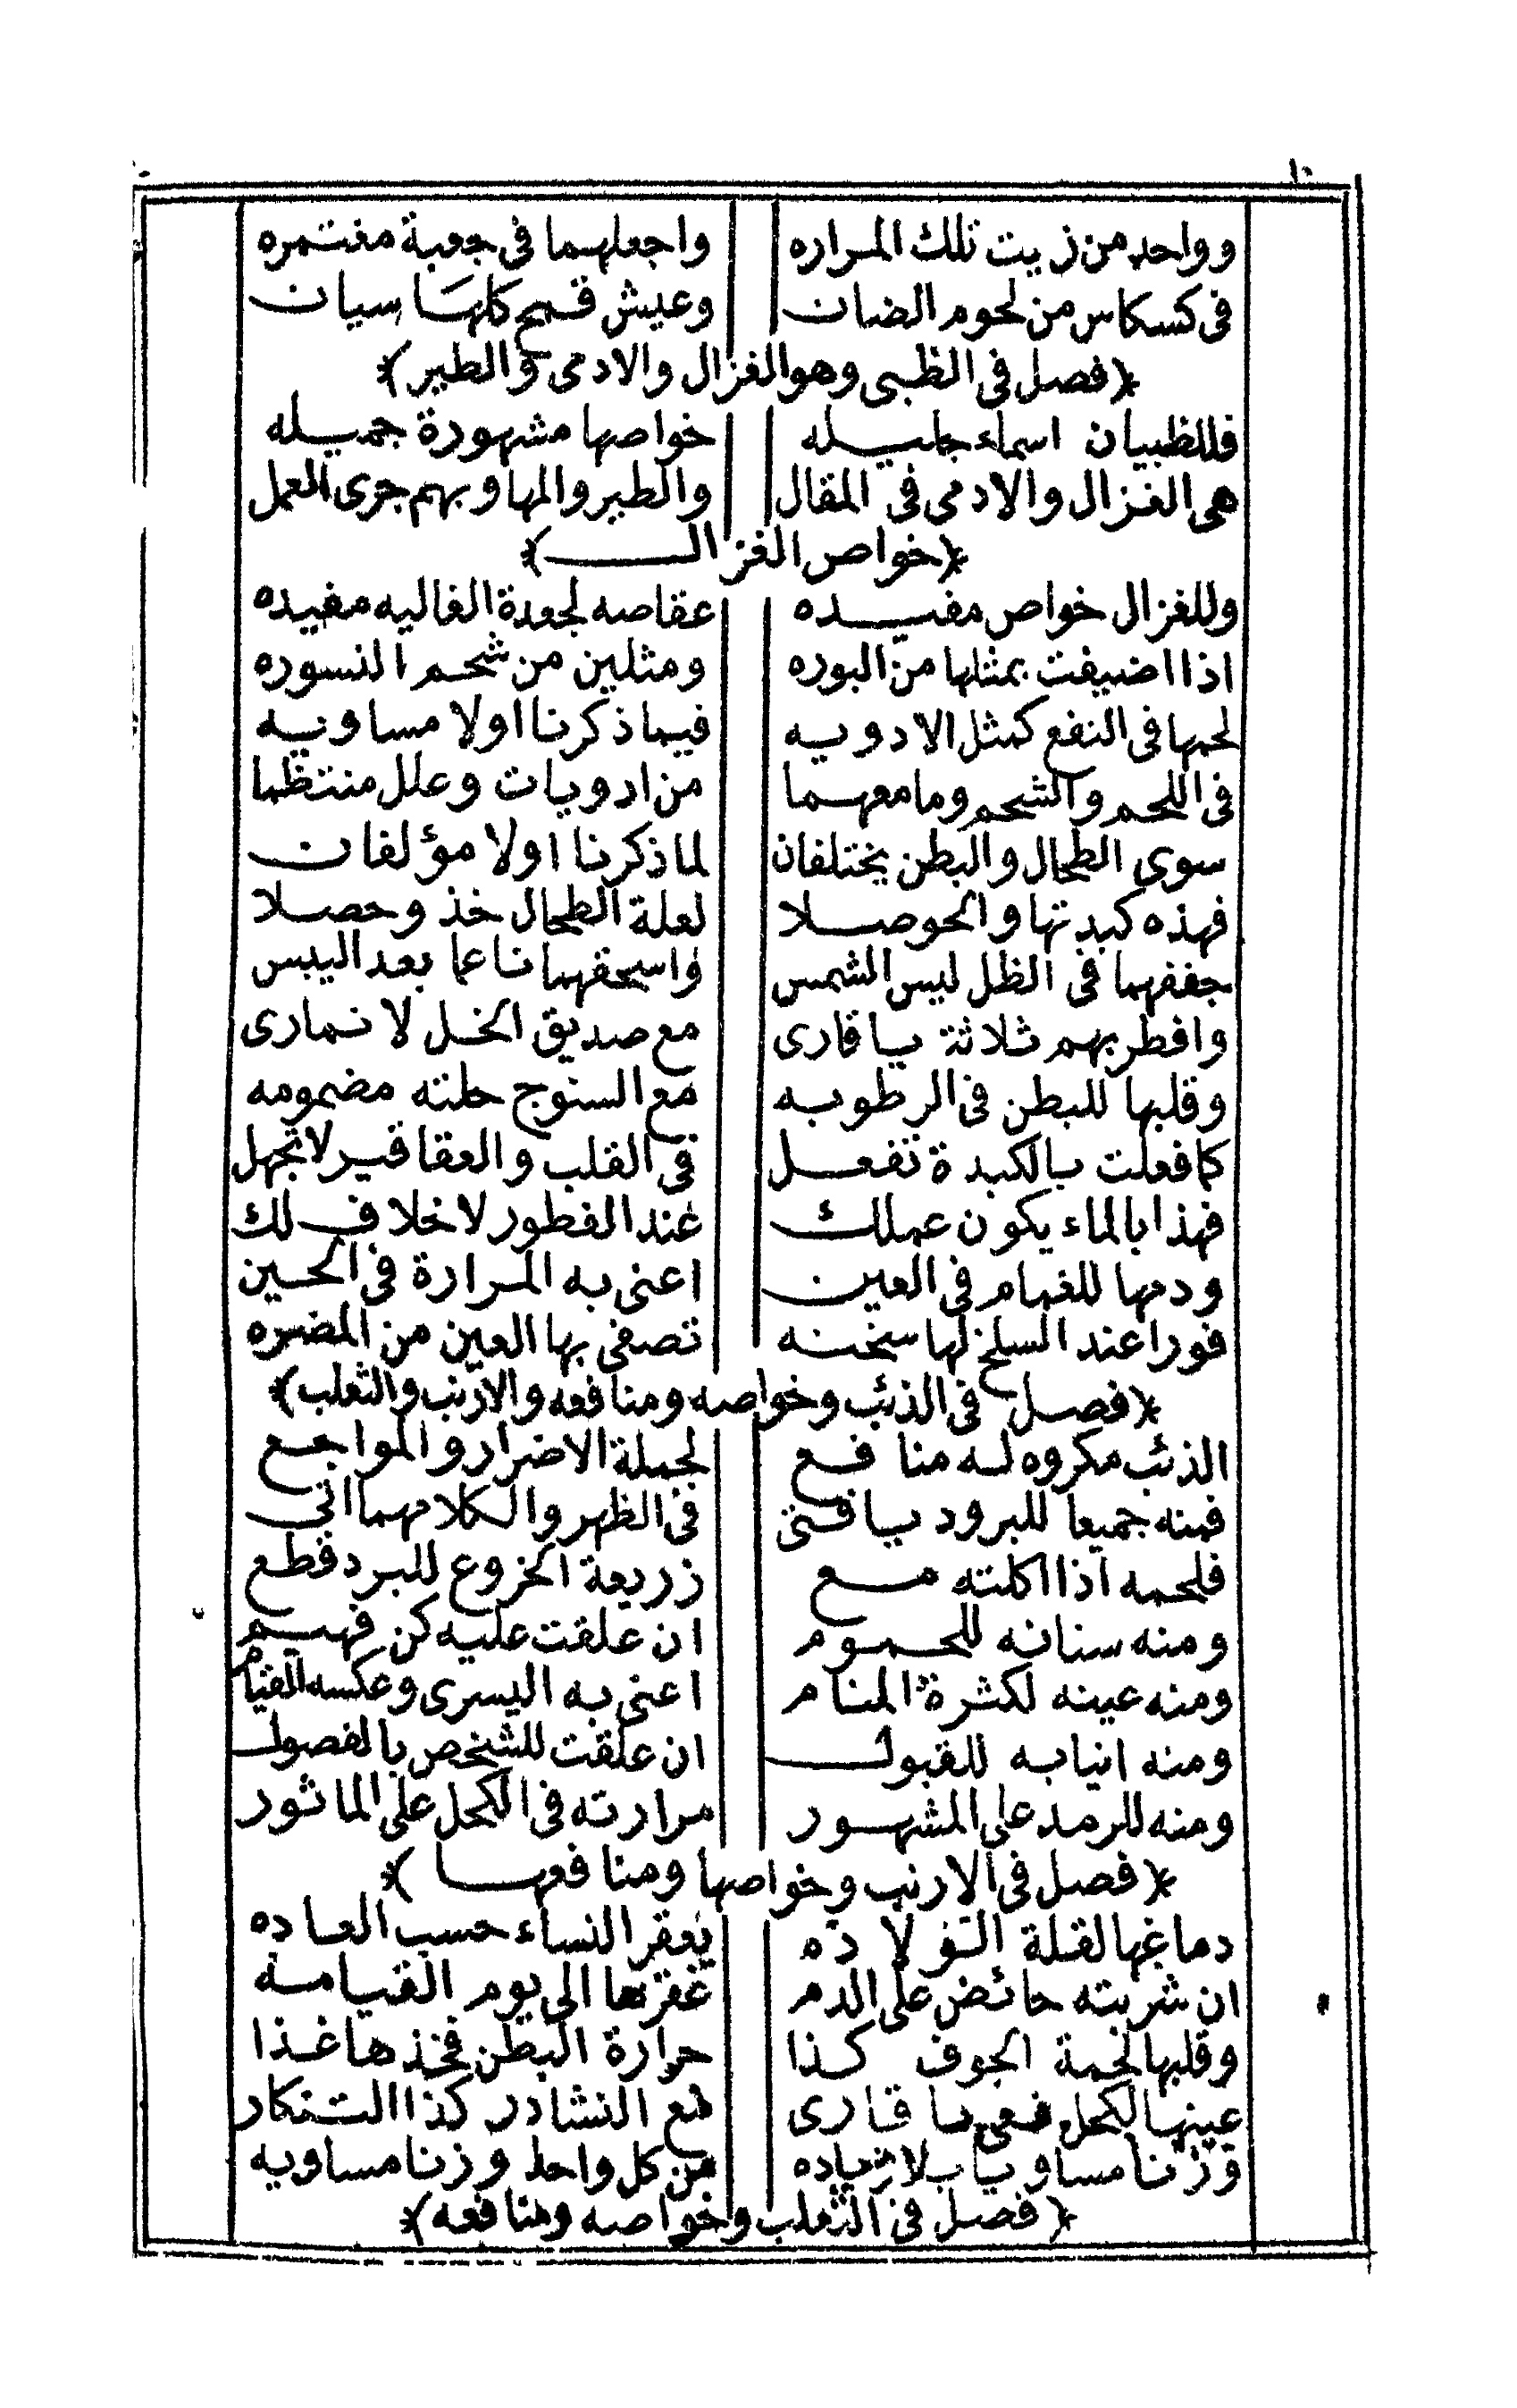 ١٠
وواحد من زيت تلك المراره واجعلهما فى جعبة مغتمره
فى كسكاس من لحوم الضان وعيش قمح كلها سيان
﴿فصل فى الظبى وهو الغزال والادمى والطير﴾
فللظبيان اسماء جليله خواصها مشهورة جميله
هى الغزال والادمى فى المقال والطير والمها وبهم جرى العمل
﴿خواص الغزال﴾
وللغزال خواص مفيده عقاصه لجعدة الغاليه مفيده
اذا اضيفت بمثلها من البوره ومثلين من شحم النسوره
لحمها فى النفع كمثل الادويه فيما ذكرنا اولا مساويه
فى اللحم والشحم وما معهما من ادويات وعلل منتظما
سوى الطحال والبطن يختلفان لما ذكرنا اولا مؤلفان
فهذه كبدتها والحوصلا لعلة الطحال خذ وحصلا
جففهما فى الظل ليس الشمس واسحقهما ناعما بعد اليبس
وافطر بهم ثلاثة يا قارى مع صديق الخل لا نمارى
وقلبها للبطن فى الرطوبه مع السنوج حلته مضمومه
كما فعلت بالكبدة تفعل فى القلب والعقاقير لا تجهل
فهذا بالماء يكون عملك عند الفطور لا خلاف لك
ودمها للغمام فى العين اعنى به المرارة فى الحين
فورا عند السلخ لها سخنه تصفى بها العين من المضره
﴿فصل فى الذئب وخواصه ومنافعه والارنب والثعلب﴾
الذئب مكروه له منافع لجملة الاضرار والمواجع
فمنه جميعا للبرود يا فتى فى الظهر والكلا مهما اتى
فلحمه اذا اكلته مع زريعة الخروع للبرد قطع
ومنه سنانه للحموم ان علقت عليه كن فهيم
ومنه عينه لكثرة المنام اعنى به اليسرى وعكسه القيام
ومنه انيابه للقبول ان علقت للشخص بالفصول
ومنه للرمد على المشهور مرارته فى الكحل على الماثور
﴿فصل فى الارنب وخواصها ومنافعها﴾
دماغها لقلة الولاده يعقر النساء حسب العاده
ان شربته حائض على الدم عقرتها الى يوم القيامه
وقلبها لخمة الجوف كذا حرارة البطن فخذها غذا
عينها لكحل يا قارى مع النشادر كذا التنكار
وزنا مساويا بلا زياده من كل واحد وزنا مساويه
﴿فصل فى الثعلب وخواصه ومنافعه﴾